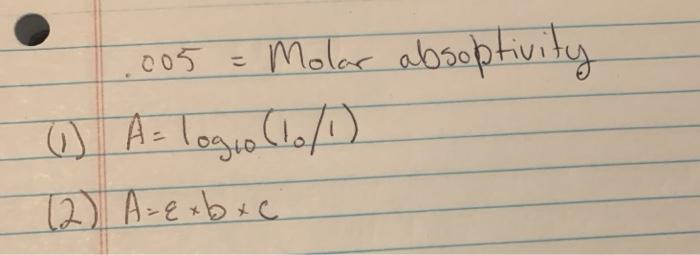 .005 = Molar absoptivity
(1) A = log₁₀(I₀/I)
(2) A=ε×b×c